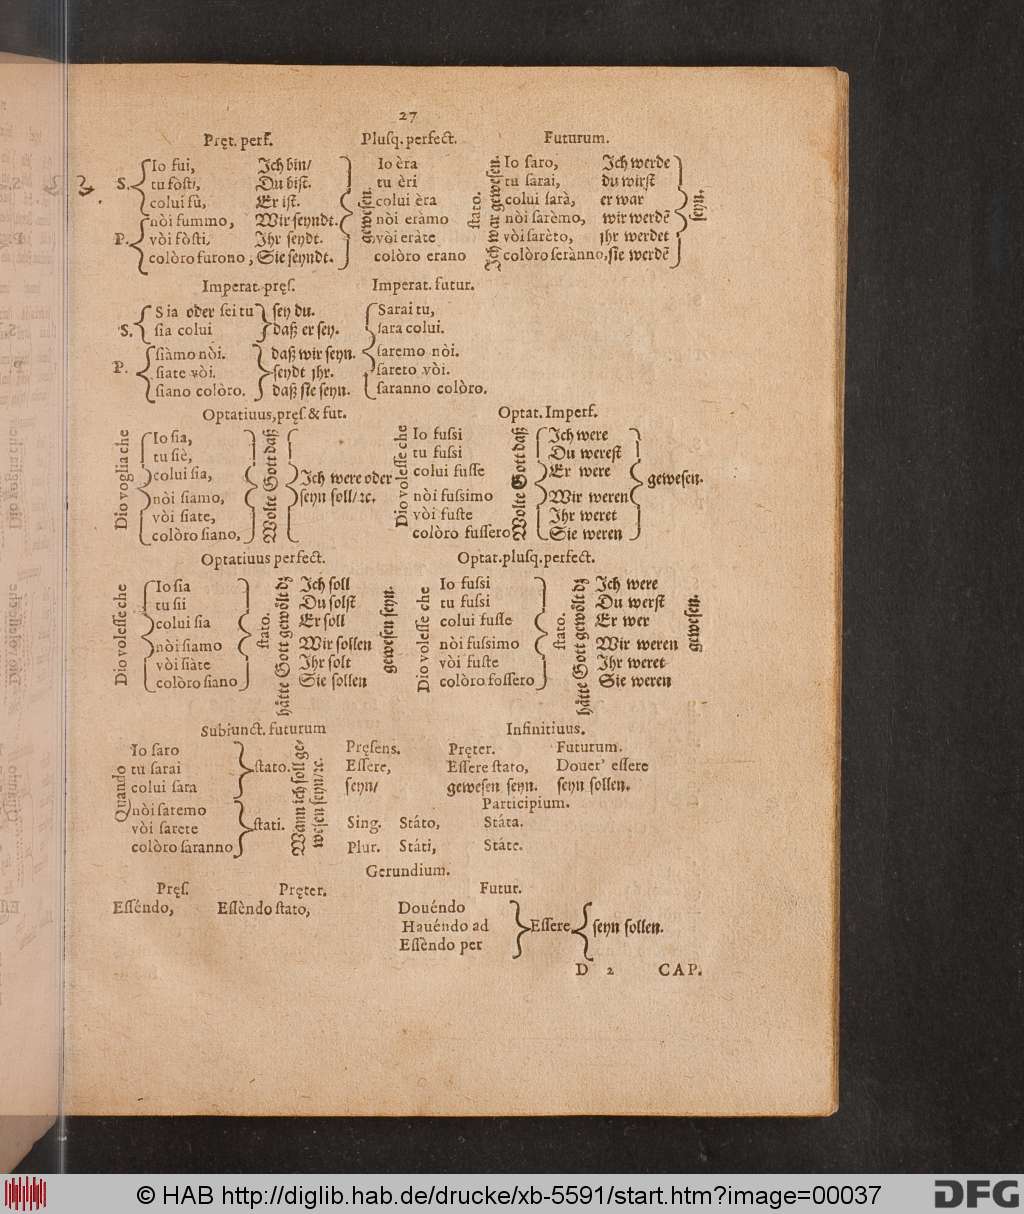 27
Pręt. perf. Plusq. perfect. Futurum.
S. Io fui, Ich bin/ Io èra Io saro, Ich werde
tu fosti, Du bist. tu èri tu sarai, du wirst
colui fù, Er ist. colui èra colui sarà, er war
P. nòi fummo, Wir seyndt. nòi eràmo nòi sarèmo, wir werdē
vòi fòsti, Ihr seydt. vòi eràte vòi sarèto, jhr werdet
colòro furono, Sie seyndt. colòro erano colòro serànno, sie werdē
gewesen. stato. Ich war gewesen. seyn.
Imperat. pręs. Imperat. futur.
S. Sia oder sei tu sey du. Sarai tu,
sia colui daß er sey. sara colui.
P. siàmo nòi. daß wir seyn. saremo nòi.
siate vòi. seydt jhr. sareto vòi.
siano colòro. daß sie seyn. saranno colòro.
Optatiuus, pręs. & fut. Optat. Imperf.
Dio voglia che Wolte Gott daß Dio volesse che Wolte Gott daß
Io sia, Io fussi Ich were
tu siè, tu fussi Du werest
colui sia, Ich were oder colui fusse Er were gewesen.
nòi siamo, seyn soll/ ꝛc. nòi fussimo Wir weren
vòi siate, vòi fuste Ihr weret
colòro siano. colòro fussero Sie weren
Optatiuus perfect. Optat. plusq. perfect.
Dio volesse che stato. hätte Gott gewölt dz gewesen seyn. Dio volesse che stato. hätte Gott gewölt dz gewesen.
Io sia Ich soll Io fussi Ich were
tu sii Du solst tu fussi Du werst
colui sia Er soll colui fusse Er wer
nòi siamo Wir sollen nòi fussimo Wir weren
vòi siàte Ihr solt vòi fuste Ihr weret
colòro siano Sie sollen colòro fossero Sie weren
Subiunct. futurum Infinitiuus.
Quando Wann ich soll ge-
wesen seyn/ ꝛc.
Io saro Pręsens. Pręter. Futurum.
tu sarai stato. Essere, Essere stato, Douer' essere
colui sara seyn/ gewesen seyn. seyn sollen.
nòi saremo Participium.
vòi sarete stati. Sing. Státo, Státa.
colòro saranno Plur. Státi, Státe.
Gerundium.
Pręs. Pręter. Futur.
Essêndo, Essèndo stato, Douéndo
Hauéndo ad Essere seyn sollen.
Essèndo per
D 2 CAP.
© HAB http://diglib.hab.de/drucke/xb-5591/start.htm?image=00037 DFG